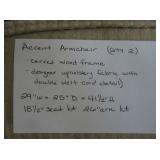 Accent Armchair (QTY 2)
- carved wood frame
- designer upholstery fabric with
double welt cord detail)
29"w = 25" D = 41 1/2" h
18 1/2" seat ht 26" arm ht